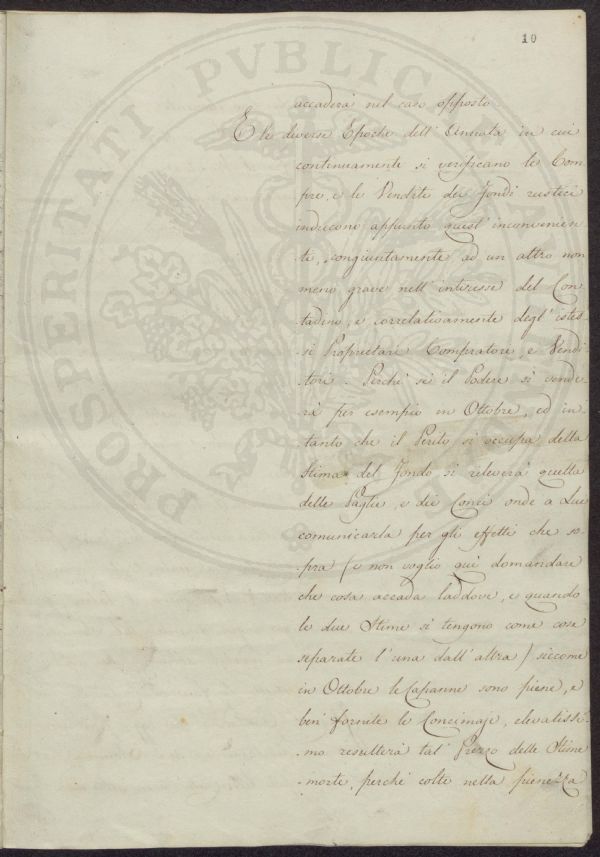 10
accaderà nel caso opposto
E le diverse Epoche dell' Annata in cui
continuamente si verificano le Com
pre, e le Vendite dei Fondi rustici
inducono appunto quest' inconvenien
te, congiuntamente ad un altro non
meno grave nell' interesse del Con
tadino, e correlativamente degl' istes-
si Proprietari Compratore, e Vendi
tori. Perchè se il Podere si vende
rà per esempio in Ottobre, ed in-
tanto che il Perito si occupa della
Stima del Fondo, si rileverà quella
delle Paglie, e dei Conci onde a Lui
comunicarla per gli effetti che so-
-pra (e non voglio quì domandare
che cosa accada laddove, e quando
le due Stime si tengono come cose
separate l' una dall' altra) siccome
in Ottobre le Capanne sono piene, e
ben fornite le Concimaje, elevatissi-
-mo resulterà tal' Prezzo delle Stime
morte, perchè colte nella pienezza
PROSPERITATI PVBLICAE